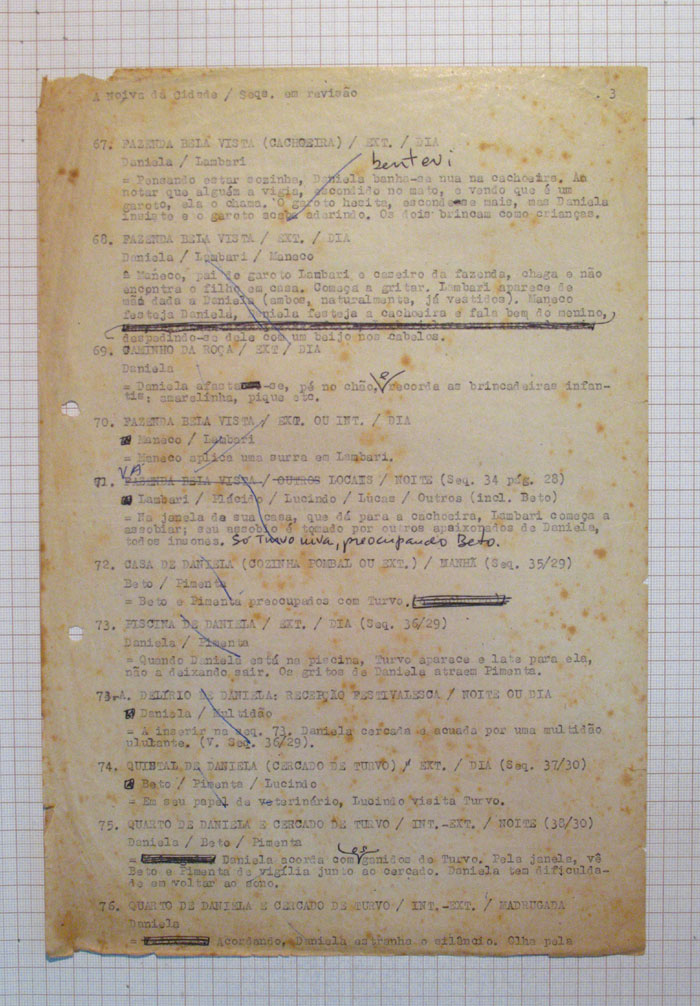 A Noiva da Cidade / Seqs. em revisão . 3
67. FAZENDA BELA VISTA (CACHOEIRA) / EXT. / DIA
Daniela / Lambari bentevi
= Pensando estar sozinha, Daniela banha-se nua na cachoeira. Ao
notar que alguém a vigia, escondido no mato, e vendo que é um
garoto, ela o chama. O garoto hesita, esconde-se mais, mas Daniela
insiste e o garoto acaba aderindo. Os dois brincam como crianças.
68. FAZENDA BELA VISTA / EXT. / DIA
Daniela / Lambari / Maneco
Maneco, pai do garoto Lambari e caseiro da fazenda, chega e não
encontra o filho em casa. Começa a gritar. Lambari aparece de
mão dada a Daniela (ambos, naturalmente, já vestidos). Maneco
festeja Daniela, Daniela festeja a cachoeira e fala bem do menino,
despedindo-se dele com um beijo nos cabelos.
69. CAMINHO DA ROÇA / EXT / DIA
Daniela
= Daniela afasta-se, pé no chão, e recorda as brincadeiras infan-
tis: amarelinha, pique etc.
70. FAZENDA BELA VISTA / EXT. OU INT. / DIA
Maneco / Lambari
= Maneco aplica uma surra em Lambari.
71. VÁ FAZENDA BELA VISTA / OUTROS LOCAIS / NOITE (Seq. 34 pág. 28)
Lambari / Plácido / Lucindo / Lucas / Outros (incl. Beto)
= Na janela de sua casa, que dá para a cachoeira, Lambari começa a
assobiar; seu assobio é tomado por outros apaixonados de Daniela,
todos insones. Só Turvo uiva, preocupando Beto.
72. CASA DE DANIELA (COZINHA POMBAL OU EXT.) / MANHÃ (Seq. 35/29)
Beto / Pimenta
= Beto e Pimenta preocupados com Turvo.
73. PISCINA DE DANIELA / EXT. / DIA (Seq. 36/29)
Daniela / Pimenta
= Quando Daniela está na piscina, Turvo aparece e late para ela,
não a deixando sair. Os gritos de Daniela atraem Pimenta.
73-A. DELÍRIO DE DANIELA: RECEPÇÃO FESTIVALESCA / NOITE OU DIA
Daniela / Multidão
= A inserir na seq. 73. Daniela cercada e acuada por uma multidão
ululante. (V. Seq. 36/29).
74. QUINTAL DE DANIELA (CERCADO DE TURVO) / EXT. / DIA (Seq. 37/30)
Beto / Pimenta / Lucindo
= Em seu papel de veterinário, Lucindo visita Turvo.
75. QUARTO DE DANIELA E CERCADO DE TURVO / INT.-EXT. / NOITE (38/30)
Daniela / Beto / Pimenta
= Daniela acorda com os ganidos de Turvo. Pela janela, vê
Beto e Pimenta de vigília junto ao cercado. Daniela tem dificulda-
de em voltar ao sono.
76. QUARTO DE DANIELA E CERCADO DE TURVO / INT.-EXT. / MADRUGADA
Daniela
= Acordando, Daniela estranha o silêncio. Olha pela